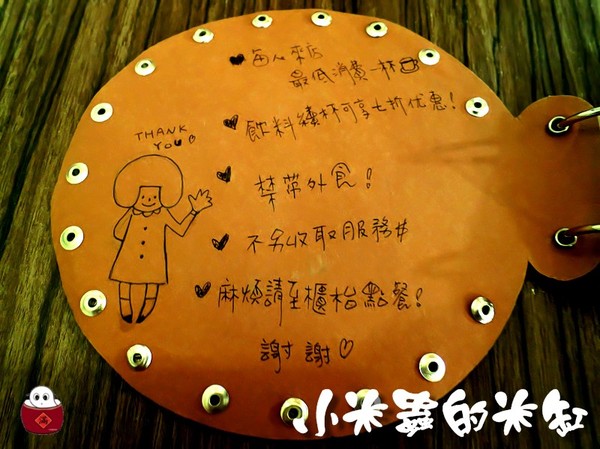 每人來店
最低消費一杯
飲料續杯可享七折优惠!
THANK
YOU
禁帶外食!
不另收取服務#
麻煩請至櫃枱點餐!
謝謝
小米蟲的米缸